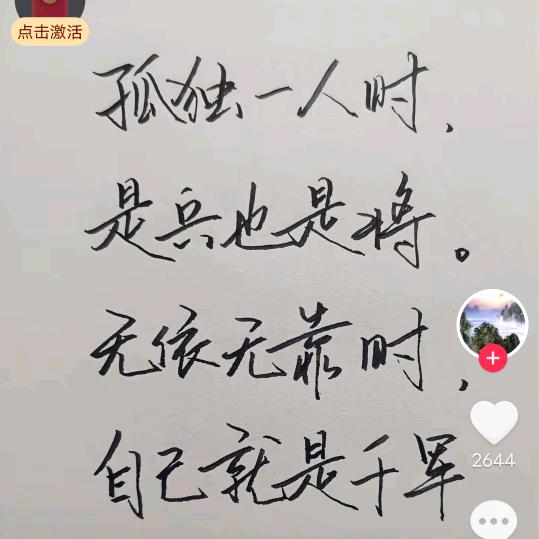 点击激活
孤独一人时，
是兵也是将。
无依无靠时，
自己就是千军
2644